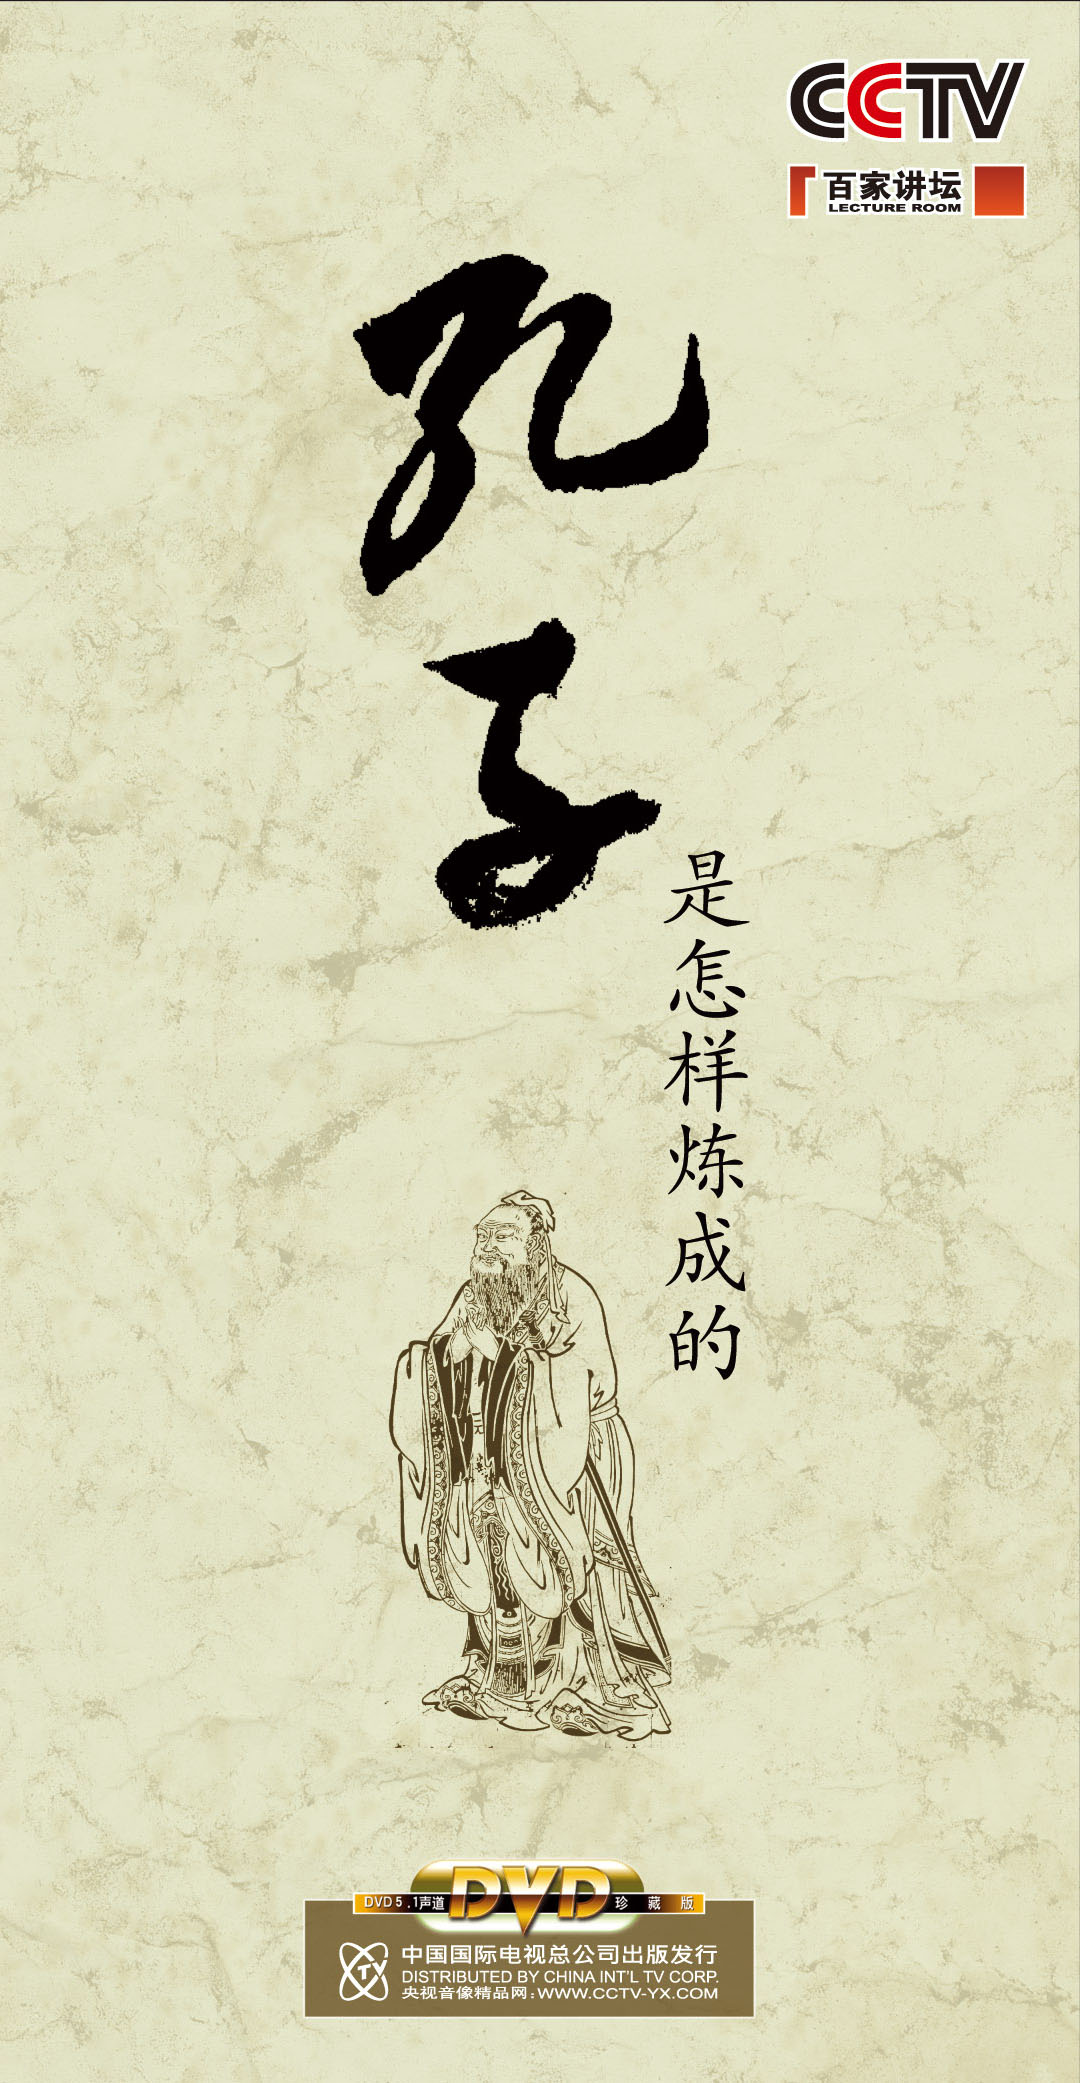 CCTV
百家讲坛
LECTURE ROOM
孔子
是怎样炼成的
DVD 5.1声道 DVD 珍藏版
TV
中国国际电视总公司出版发行
DISTRIBUTED BY CHINA INT'L TV CORP.
央视音像精品网:WWW.CCTV-YX.COM